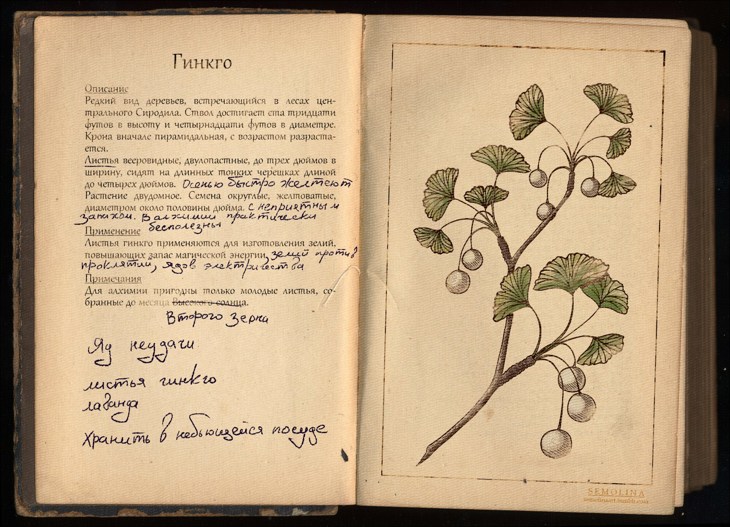 Гинкго
Описание
Редкий вид деревьев, встречающийся в лесах цен-
трального Сиродила. Ствол достигает ста тридцати
футов в высоту и четырнадцати футов в диаметре.
Крона вначале пирамидальная, с возрастом разраста-
ется.
Листья вееровидные, двулопастные, до трех дюймов в
ширину, сидят на длинных тонких черешках длиной
до четырех дюймов. Осенью быстро желтеют
Растение двудомное. Семена округлые, желтоватые,
диаметром около половины дюйма, с неприятным
запахом. В алхимии практически
бесполезны
Применение
Листья гинкго применяются для изготовления зелий,
повышающих запас магической энергии, зелий против
проклятий, ядов электричества
Примечания
Для алхимии пригодны только молодые листья, со-
бранные до месяца Высокого солнца.
Второго Зерна
Яд неудачи
листья гинкго
лаванда
Хранить в небьющейся посуде
SEMOLINA